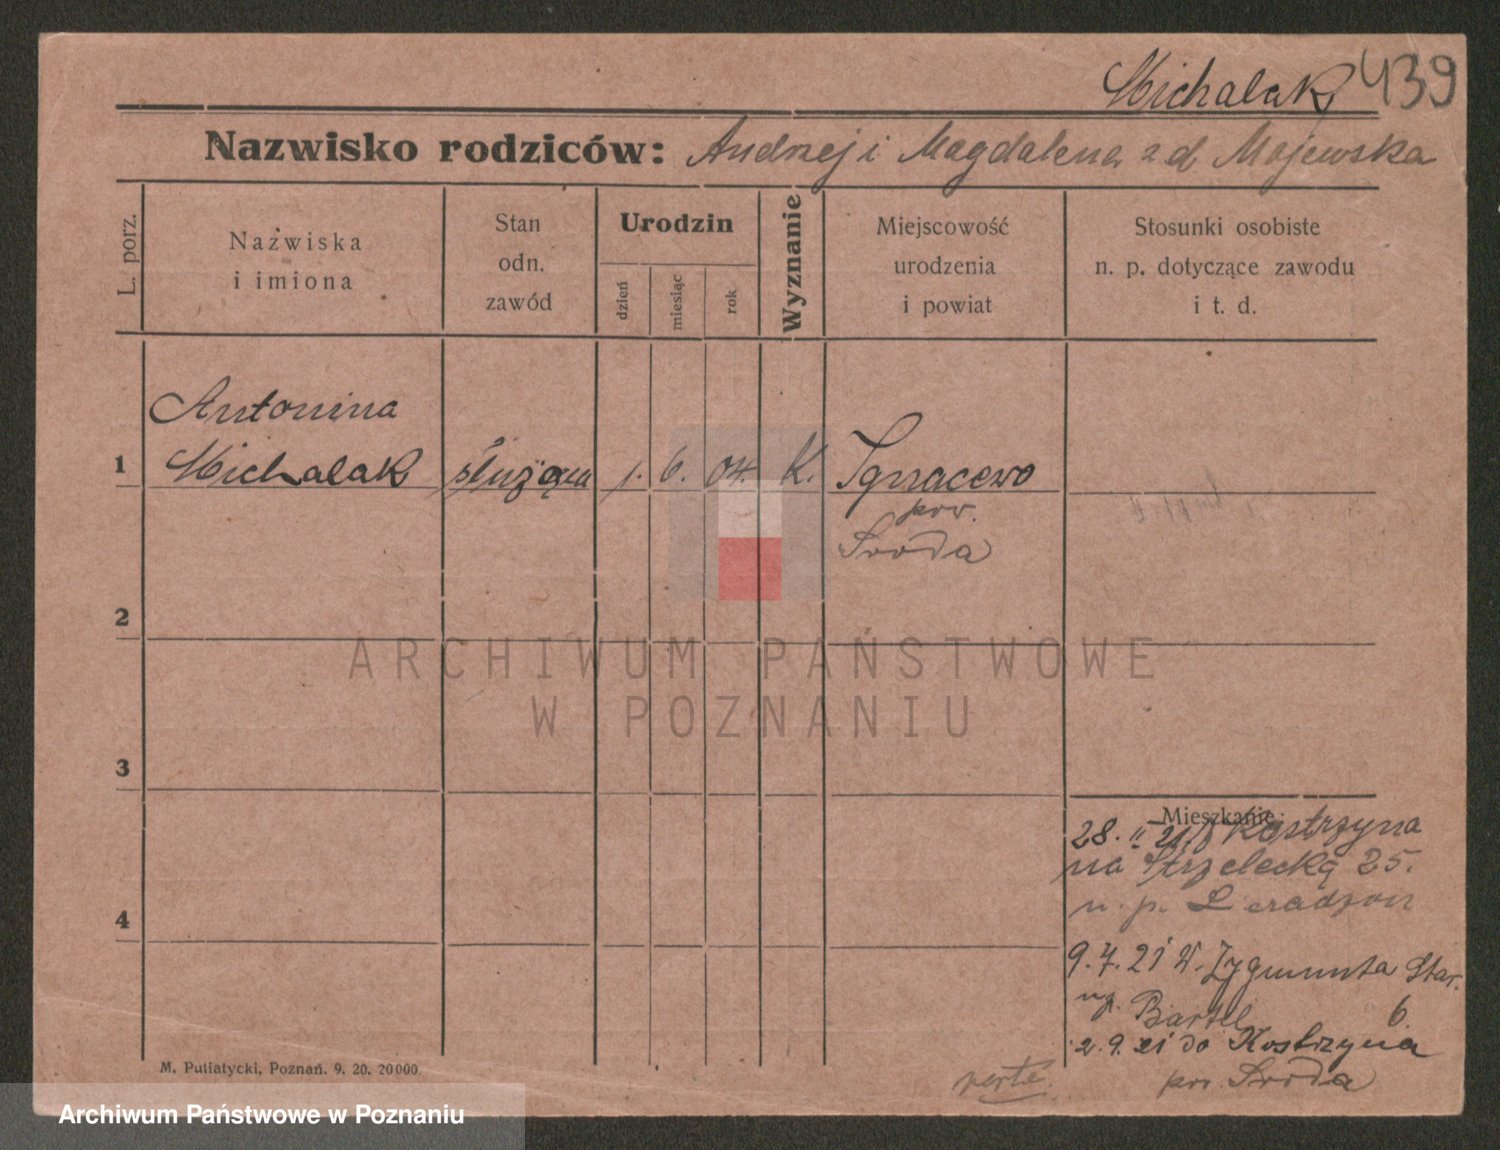 Michalak 439
Nazwisko rodziców: Andrzej i Magdalena zd Majewska
L. porz.
Nazwiska
i imiona
Stan
odn.
zawód
Urodzin
dzień
miesiąc
rok
Wyznanie
Miejscowość
urodzenia
i powiat
Stosunki osobiste
n. p. dotyczące zawodu
i t. d.
Antonina
1 Michalak służąca 1. 6. 04. K. Ignacewo
pow.
Środa
2
3
4
ARCHIWUM PAŃSTWOWE
W POZNANIU
Mieszkanie:
28. II 21 Kostrzyna
na Strzelecką 25.
u. p.
9.7.21 W. Zygmunta Star.
up. Bartel 6.
2.9.21 do Kostrzyna
pow. Środa
M. Putiatycki, Poznań. 9. 20. 20000.
Archiwum Państwowe w Poznaniu